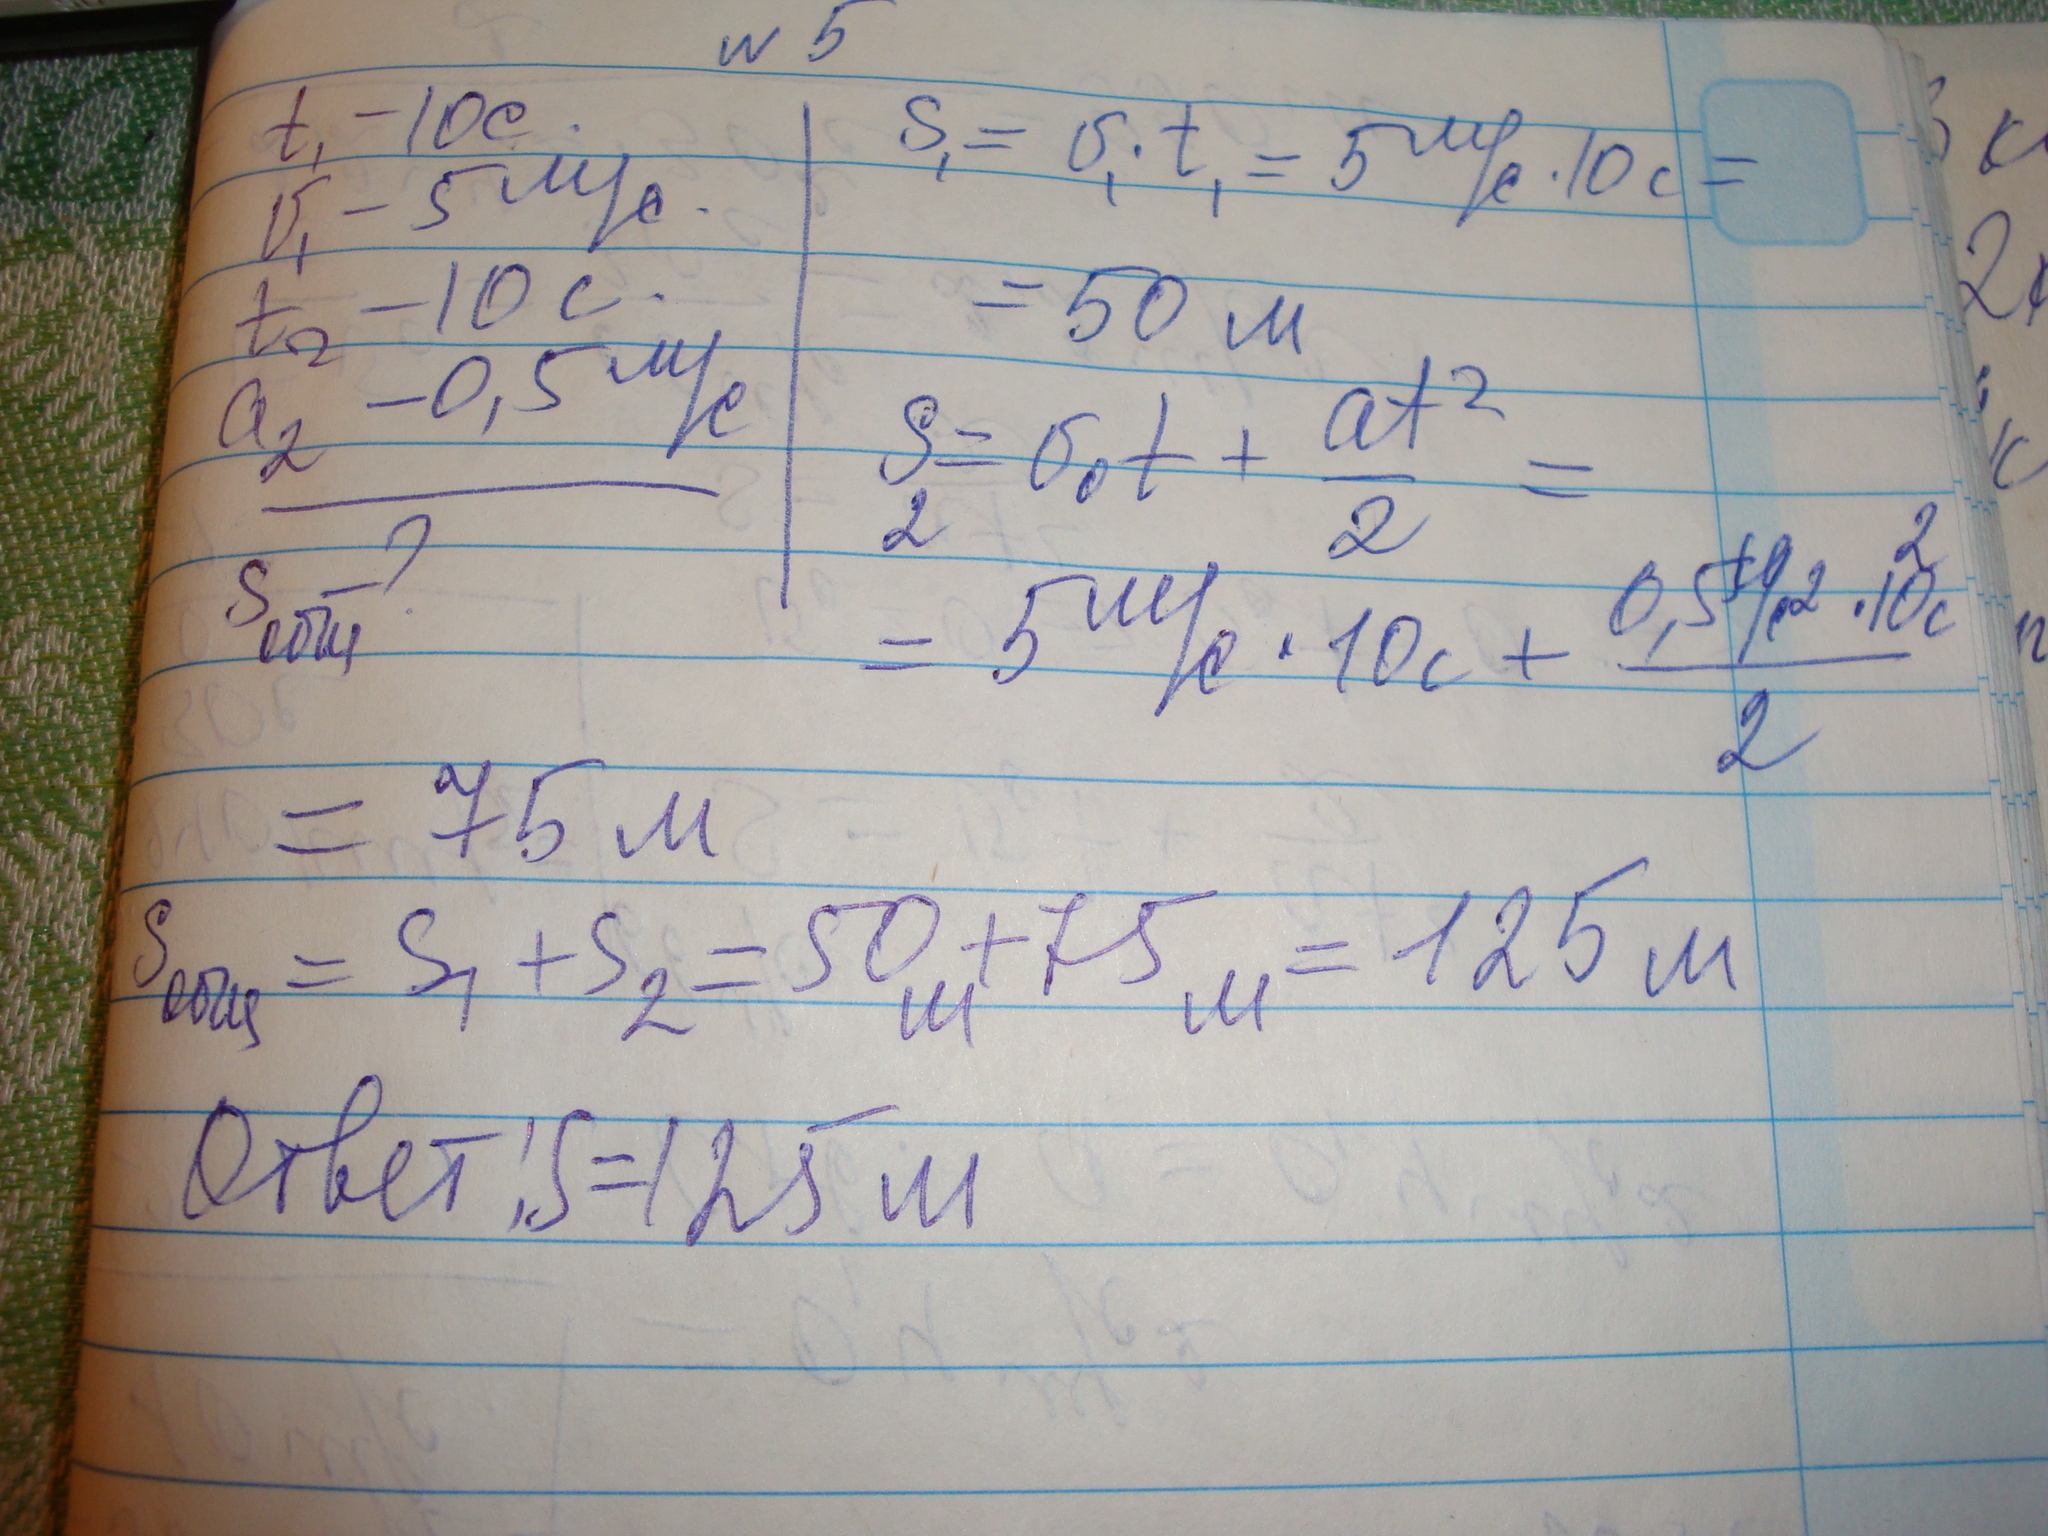 № 5
t₁ – 10 с.
υ₁ – 5 м/с.
t₂ – 10 с.
a₂ – 0,5 м/с
Sобщ – ?
S₁ = υ₁ · t₁ = 5 м/с · 10 с =
= 50 м
S₂ = υ₀t + at²/2 =
= 5 м/с · 10 с + 0,5 м/с² · 10с²/2
= 75 м
Sобщ = S₁ + S₂ = 50 м + 75 м = 125 м
Ответ: S = 125 м